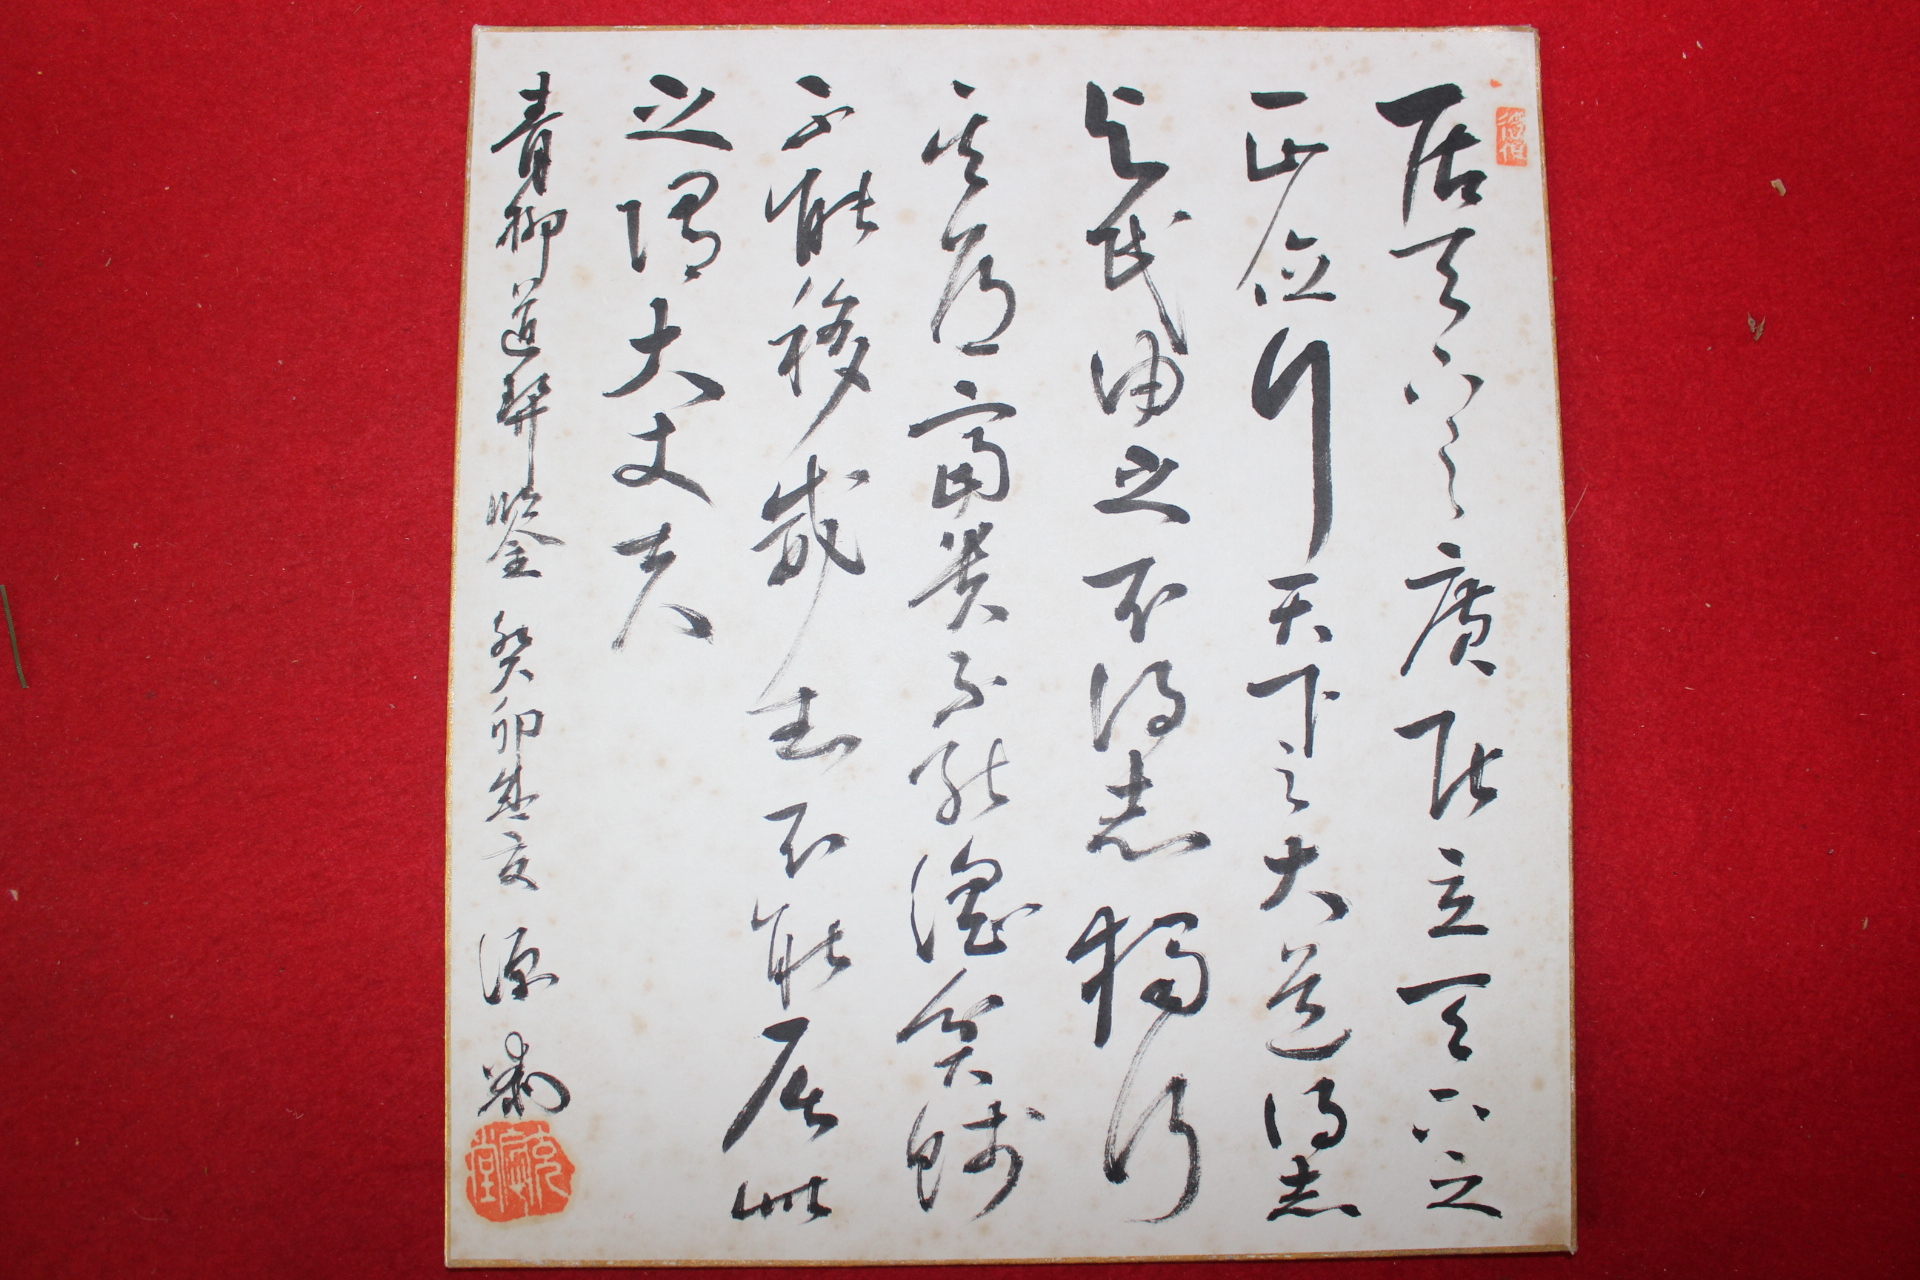 居天下之廣居立天下之
正位行天下之大道得志
与民由之不得志獨行
其道富貴不能淫貧賤
不能移威武不能屈此
之謂大丈夫
青柳道契鑒 癸卯盛夏 源